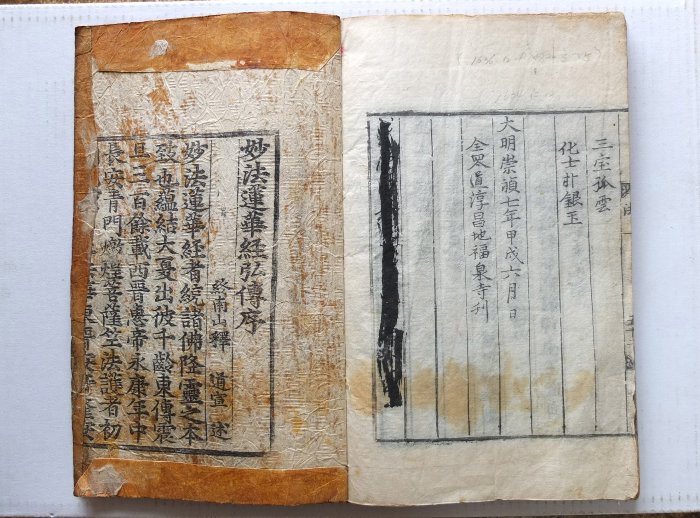 三宝孤雲
化士
大明崇禎七年甲戌六月日
全羅道淳昌地福泉寺刊
妙法蓮華經弘傳序
終南山釋 道宣 述
妙法蓮華經者統諸佛降靈之本
致也蘊結大夏出彼千齡東傳震
旦三百餘載西晉惠帝永康年中
長安青門燉煌菩薩竺法護者初
法華東晉安帝隆安